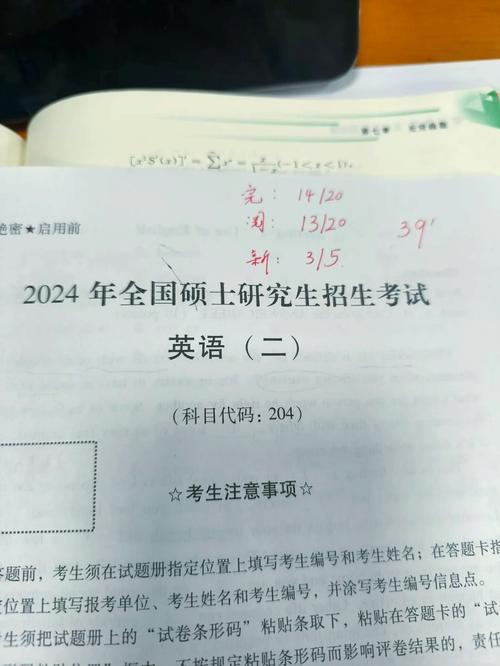 第七章 无穷级数
[x³S'(x)]' = Σ xⁿ = x/(1-x) (-1<x<1),
完: 14/20
阅: 13/20
39'
新: 3/5
绝密★启用前
2024 年全国硕士研究生招生考试
英语（二）
（科目代码：204）
☆考生注意事项☆
答题前，考生须在试题册指定位置上填写考生编号和考生姓名；在答题卡指
位置上填写报考单位、考生姓名和考生编号，并涂写考生编号信息点。
生须把试题册上的“试卷条形码”粘贴条取下，粘贴在答题卡的“试
框中，不按规定粘贴条形码而影响评卷结果的，责任